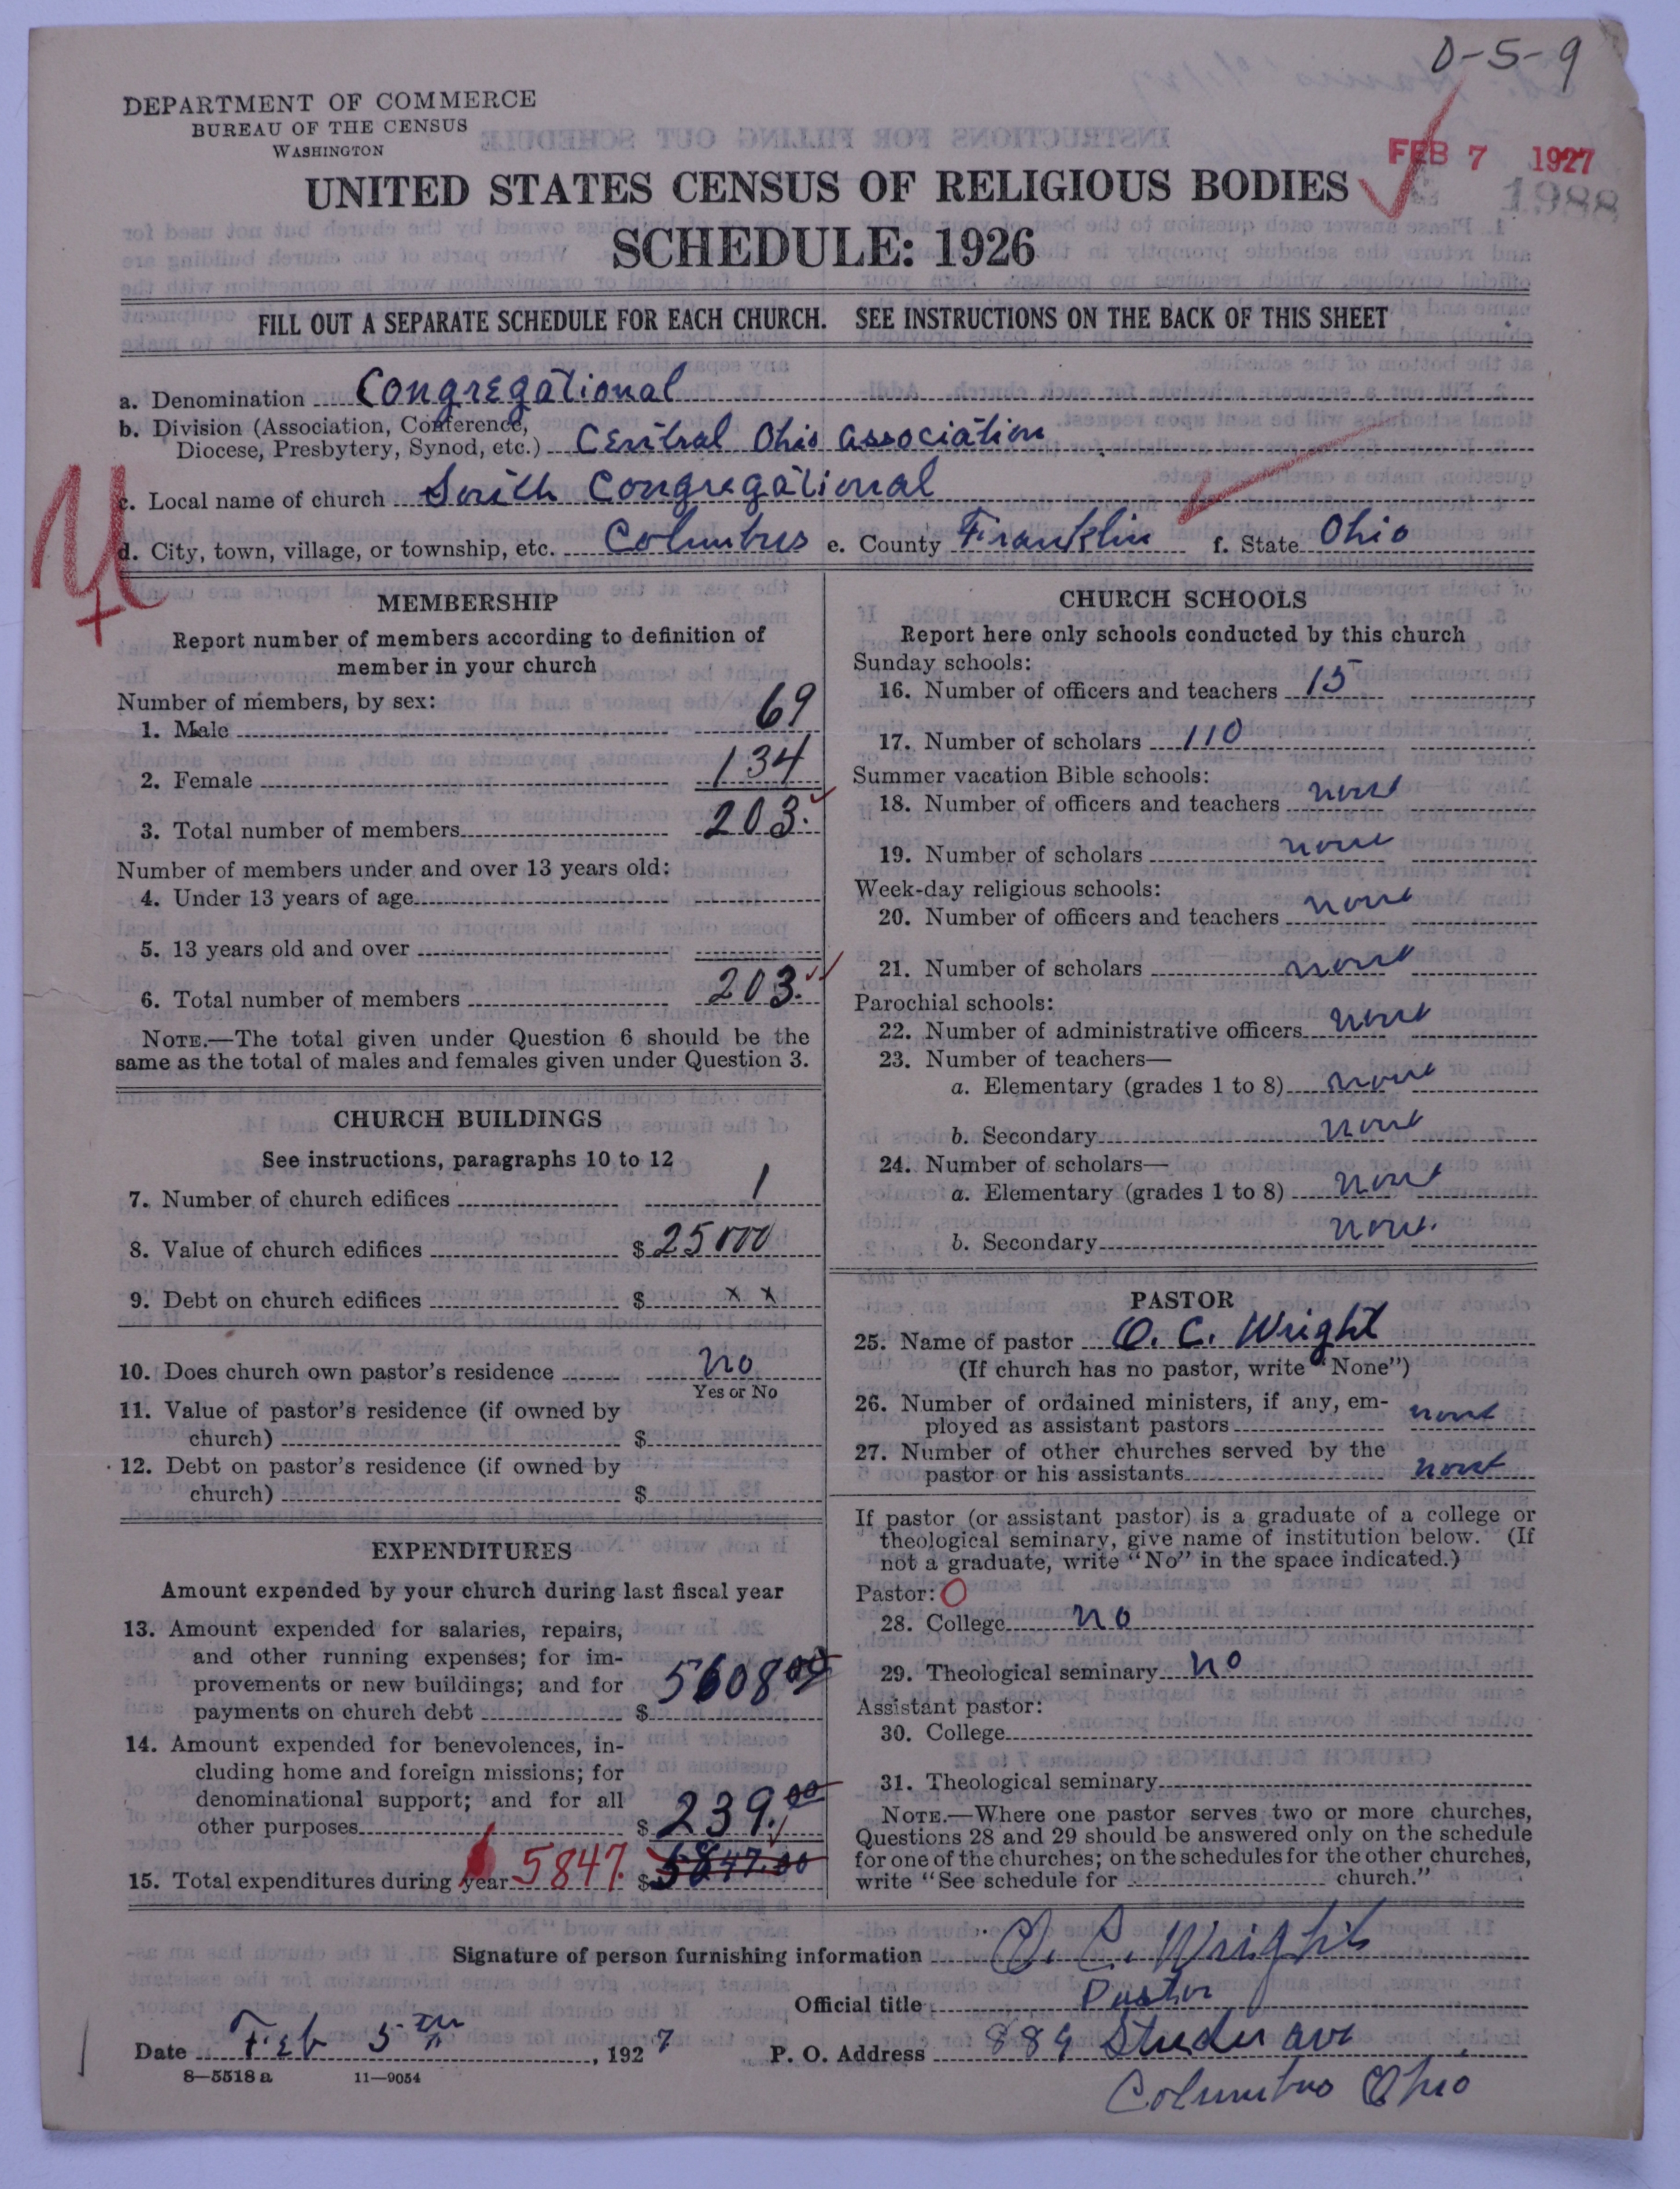 D-5-9
DEPARTMENT OF COMMERCE
BUREAU OF THE CENSUS
WASHINGTON
FEB 7 1927
1988
UNITED STATES CENSUS OF RELIGIOUS BODIES
SCHEDULE: 1926
FILL OUT A SEPARATE SCHEDULE FOR EACH CHURCH. SEE INSTRUCTIONS ON THE BACK OF THIS SHEET
a. Denomination Congregational
b. Division (Association, Conference,
Diocese, Presbytery, Synod, etc.) Central Ohio Association
c. Local name of church South Congregational
d. City, town, village, or township, etc. Columbus e. County Franklin f. State Ohio
MEMBERSHIP
Report number of members according to definition of
member in your church
Number of members, by sex:
1. Male 69
2. Female 134
3. Total number of members 203.
Number of members under and over 13 years old:
4. Under 13 years of age
5. 13 years old and over
6. Total number of members 203.
NOTE.—The total given under Question 6 should be the
same as the total of males and females given under Question 3.
CHURCH BUILDINGS
See instructions, paragraphs 10 to 12
7. Number of church edifices 1
8. Value of church edifices $ 25000
9. Debt on church edifices $ x x
10. Does church own pastor's residence no
Yes or No
11. Value of pastor's residence (if owned by
church) $
12. Debt on pastor's residence (if owned by
church) $
EXPENDITURES
Amount expended by your church during last fiscal year
13. Amount expended for salaries, repairs,
and other running expenses; for im-
provements or new buildings; and for
payments on church debt $ 5608 00
14. Amount expended for benevolences, in-
cluding home and foreign missions; for
denominational support; and for all
other purposes $ 239.00
15. Total expenditures during year 5847. $ 5847.00
CHURCH SCHOOLS
Report here only schools conducted by this church
Sunday schools:
16. Number of officers and teachers 15
17. Number of scholars 110
Summer vacation Bible schools:
18. Number of officers and teachers none
19. Number of scholars none
Week-day religious schools:
20. Number of officers and teachers none
21. Number of scholars none
Parochial schools:
22. Number of administrative officers none
23. Number of teachers—
a. Elementary (grades 1 to 8) none
b. Secondary none
24. Number of scholars—
a. Elementary (grades 1 to 8) none
b. Secondary none.
PASTOR
25. Name of pastor O. C. Wright
(If church has no pastor, write "None")
26. Number of ordained ministers, if any, em-
ployed as assistant pastors none
27. Number of other churches served by the
pastor or his assistants none
If pastor (or assistant pastor) is a graduate of a college or
theological seminary, give name of institution below. (If
not a graduate, write "No" in the space indicated.)
Pastor: O
28. College no
29. Theological seminary no
Assistant pastor:
30. College
31. Theological seminary
NOTE.—Where one pastor serves two or more churches,
Questions 28 and 29 should be answered only on the schedule
for one of the churches; on the schedules for the other churches,
write "See schedule for church."
Signature of person furnishing information O. C. Wright
Official title Pastor
Date Feb 5 th, 1927 P. O. Address 889 ave
Columbus Ohio
8-5518 a 11-9054